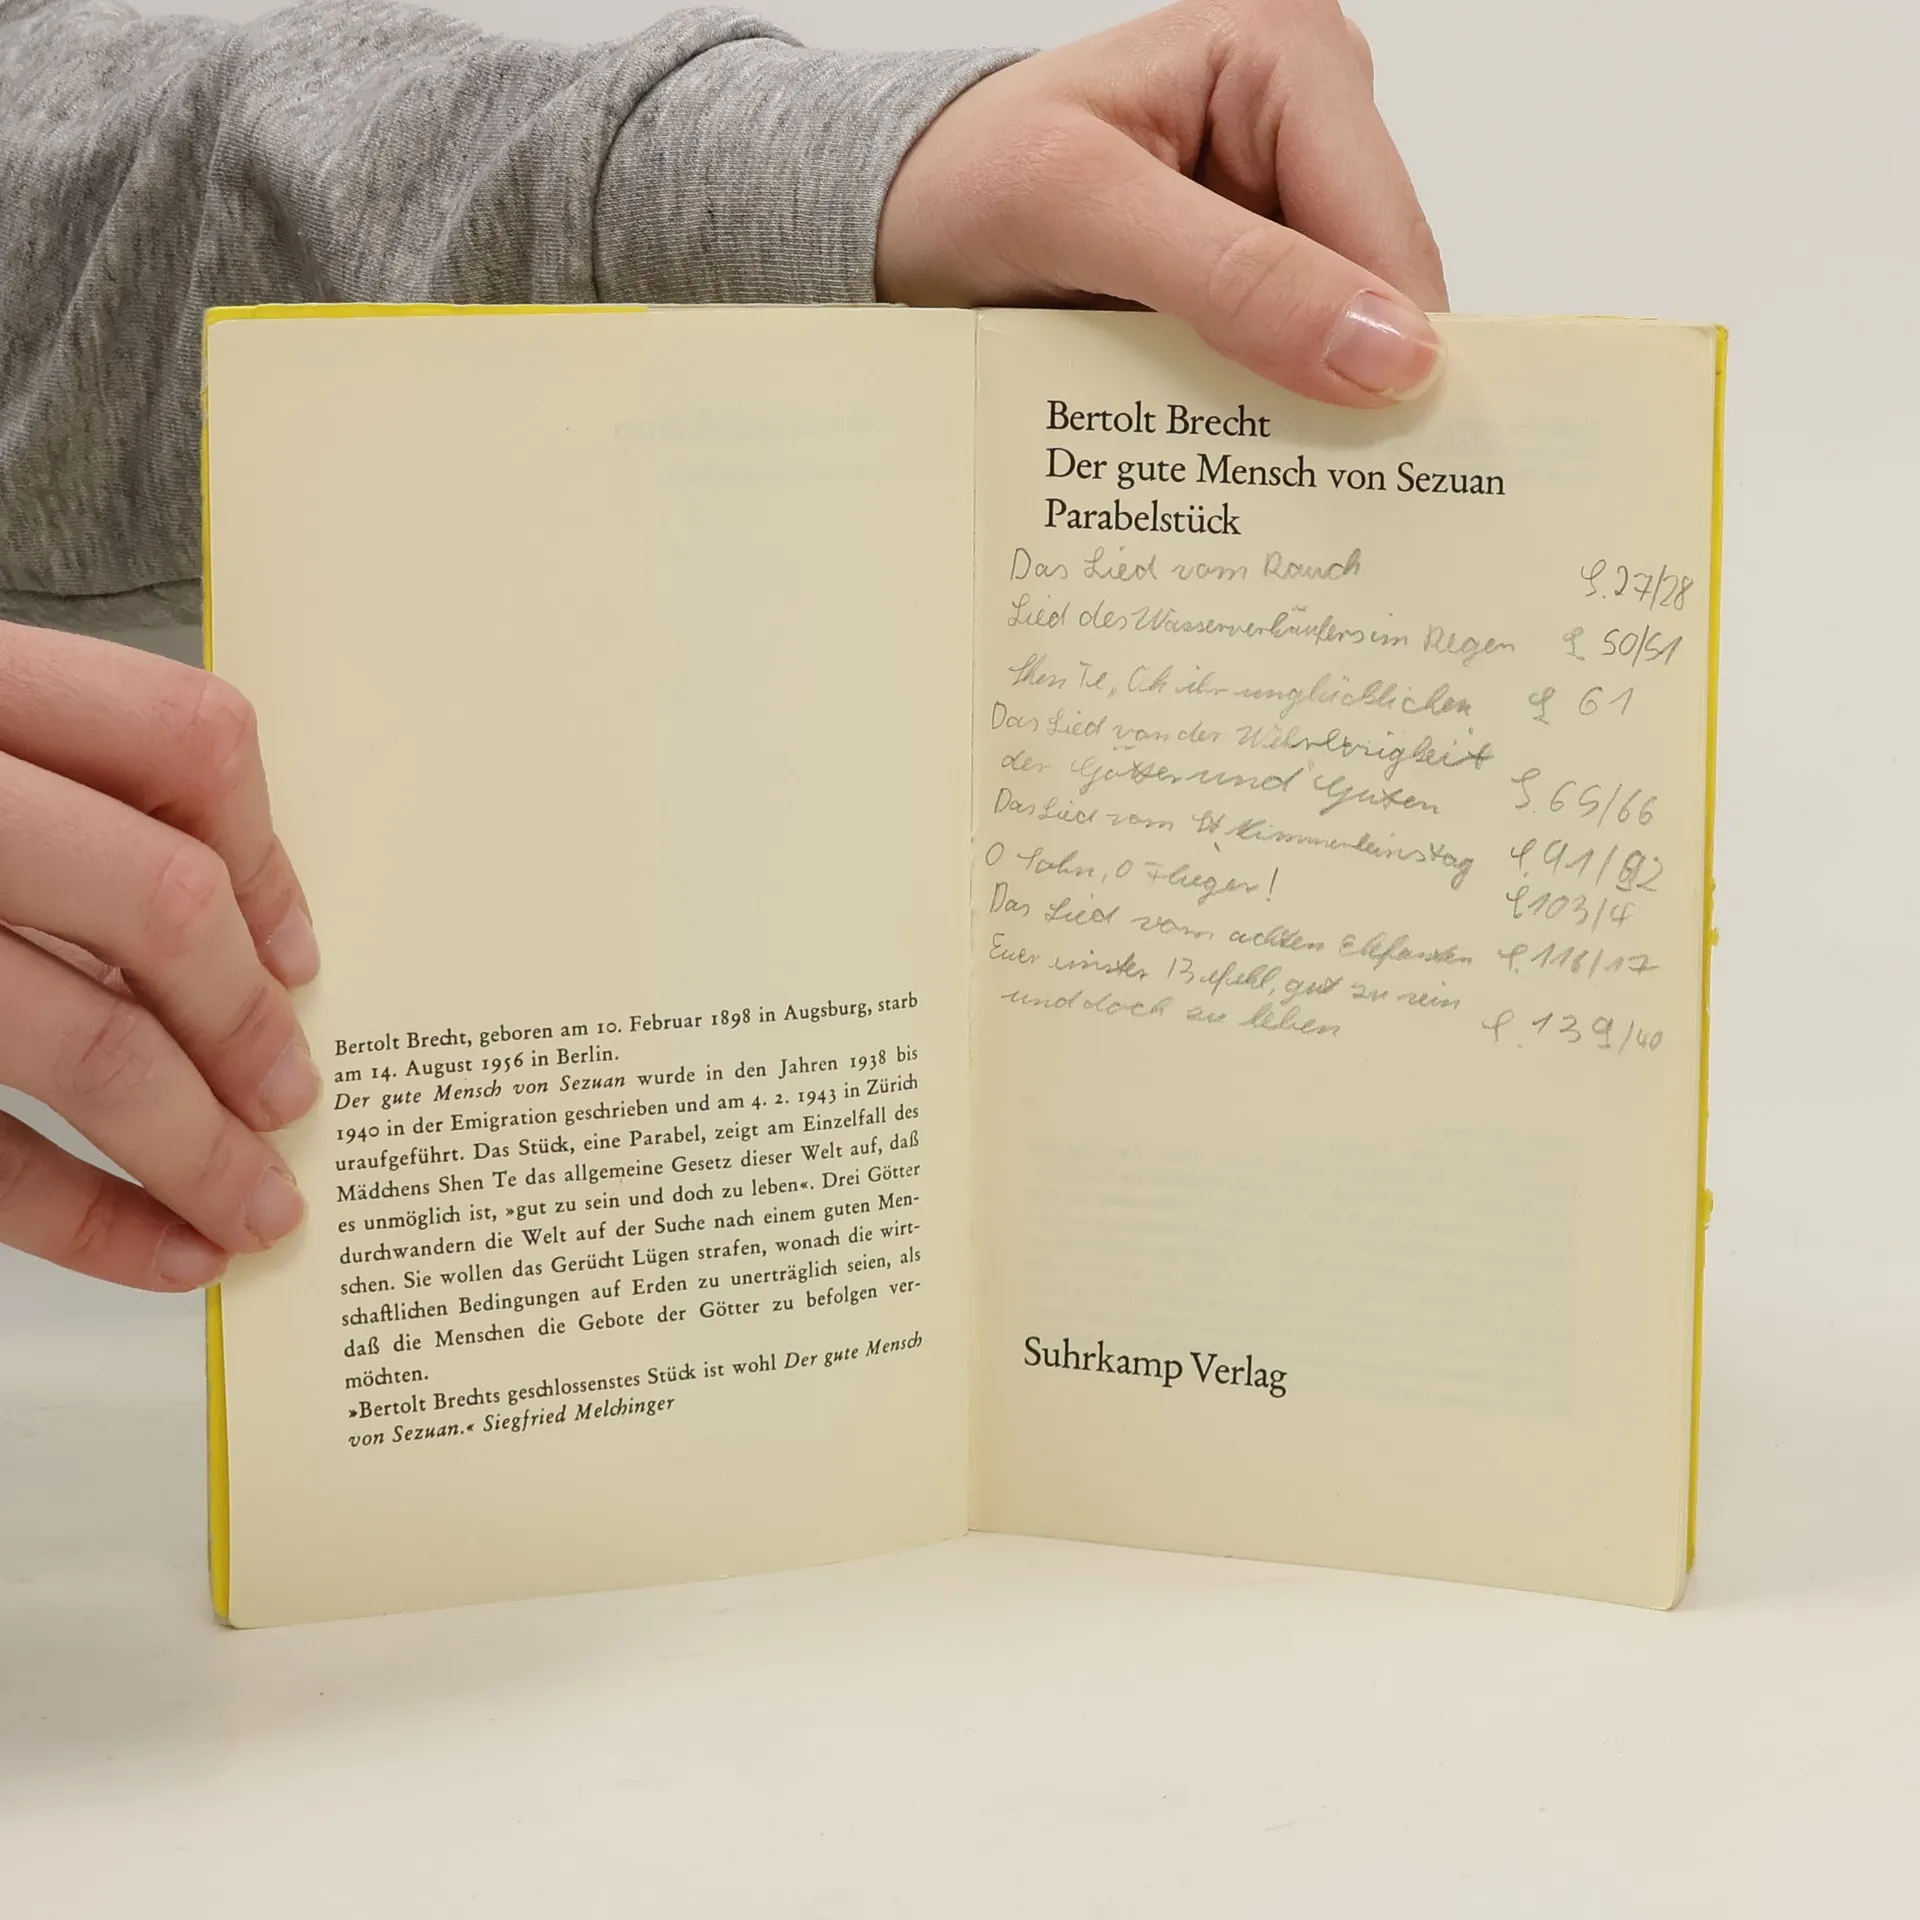 Bertolt Brecht, geboren am 10. Februar 1898 in Augsburg, starb
am 14. August 1956 in Berlin.
Der gute Mensch von Sezuan wurde in den Jahren 1938 bis
1940 in der Emigration geschrieben und am 4. 2. 1943 in Zürich
uraufgeführt. Das Stück, eine Parabel, zeigt am Einzelfall des
Mädchens Shen Te das allgemeine Gesetz dieser Welt auf, daß
es unmöglich ist, »gut zu sein und doch zu leben«. Drei Götter
durchwandern die Welt auf der Suche nach einem guten Men-
schen. Sie wollen das Gerücht Lügen strafen, wonach die wirt-
schaftlichen Bedingungen auf Erden zu unerträglich seien, als
daß die Menschen die Gebote der Götter zu befolgen ver-
möchten.
»Bertolt Brechts geschlossenstes Stück ist wohl Der gute Mensch
von Sezuan.« Siegfried Melchinger
Bertolt Brecht
Der gute Mensch von Sezuan
Parabelstück
Das Lied vom Rauch S. 27/28
Lied des Wasserverkäufers im Regen S 50/51
Shen Te, Oh ihr unglücklichen S 61
Das Lied von der Wehrlosigkeit
der Götter und Guten S. 65/66
Das Lied vom St. Nimmerleinstag S. 91/92
O Sohn, O Flieger! S 103/4
Das Lied vom achten Elefanten S. 116/17
Euer einster Befehl, gut zu sein
und doch zu leben S. 139/40
Suhrkamp Verlag